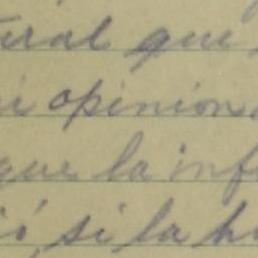 tural que
opinion
que la inf
ió si la h